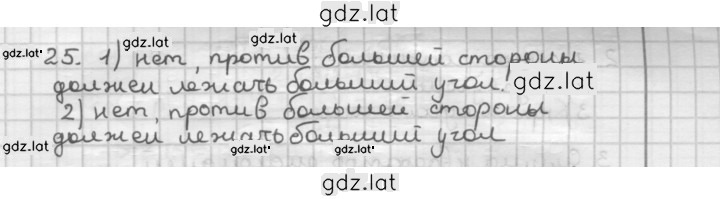 gdz.lat
gdz.lat
gdz.lat
gdz.lat
25. 1) нет, против большей стороны
должен лежать больший угол.
gdz.lat
2) нет, против большей стороны
должен лежать больший угол
gdz.lat
gdz.lat
gdz.lat
gdz.lat